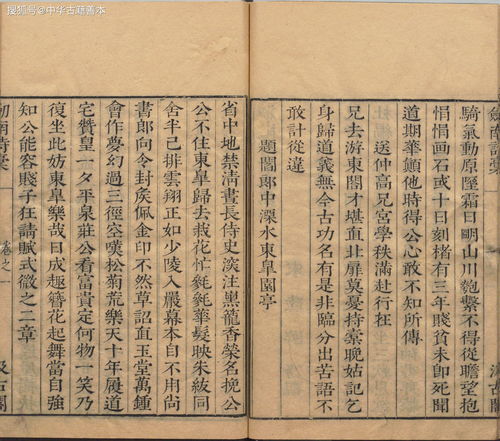 搜狐号@中华古籍善本
劍南詩稾
汲古閣
騎氣動原隰霜日明山川匏繫不得從瞻望抱
悁悁画石或十日刻楮有三年賤貧未即死聞
道期華顛他時得公心敢不知所傳
送仲高兄宮學秩滿赴行在
兄去游東閣才堪直北扉莫憂持橐晚姑記乞
身歸道義無今古功名有是非臨分出苦語不
敢計從違
題閻郎中溧水東皐園亭
省中地禁清晝長侍史深注熏籠香榮名挽公
公不住東皐歸去栽花忙毿毿華髮映朱紱同
舍半已排雲翔正如少陵入嚴幕本自不用尚
書郎向令封矦佩金印不然草詔直玉堂萬鍾
會作夢幻過三徑空嘆松菊荒樂天十年履道
宅贊皇一夕平泉莊公看富貴定何物一笑乃
復坐此妨東皐樂哉日成趣簪花起舞當自強
知公能容賤子狂請賦式微之二章
劍南詩稾
卷之一
汲古閣